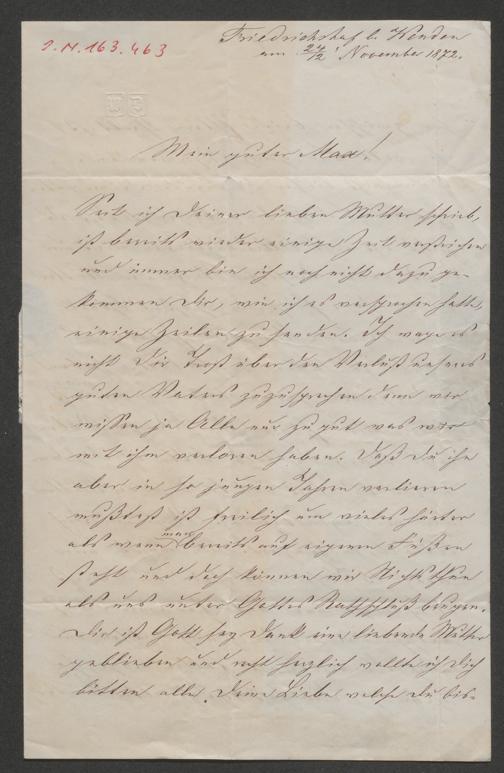 I.N. 163.463
Friedrichshof b. Wenden
am 24/12 November 1872.
Mein guter Max!
Seit ich Deiner lieben Mutter schrieb,
ist bereits wieder einige Zeit verstrichen
und immer bin ich noch nicht dazu ge-
kommen Dir, wie ich es versprochen hatte,
einige Zeilen zu senden. Ich wage es
nicht Dir Trost über den Verlust unseres
guten Vaters zuzusprechen denn wir
wissen ja Alle nur zu gut was wir
mit ihm verloren haben. Daß Du ihn
aber in so jungen Jahren verlieren
mußtest ist freilich um vieles härter
als wenn man bereits auf eigenen Füßen
steht und doch können wir Nichts thun
als uns unter Gottes Rathschluß beugen.
Dir ist Gott sey Dank eine liebende Mutter
geblieben und recht herzlich wollte ich Dich
bitten alle Deine Liebe welche Du bis-